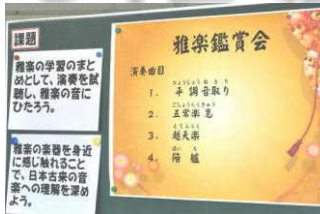 課題
雅楽の学習のまと
めとして、演奏を試
聴し、雅楽の音に
ひたろう。
雅楽の楽器を身近
に感じ触れること
で、日本古来の音
楽への理解を深め
よう。
雅楽鑑賞会
演奏曲目
1. 平調音取り
2. 五常楽急
3. 越天楽
4. 陪臚